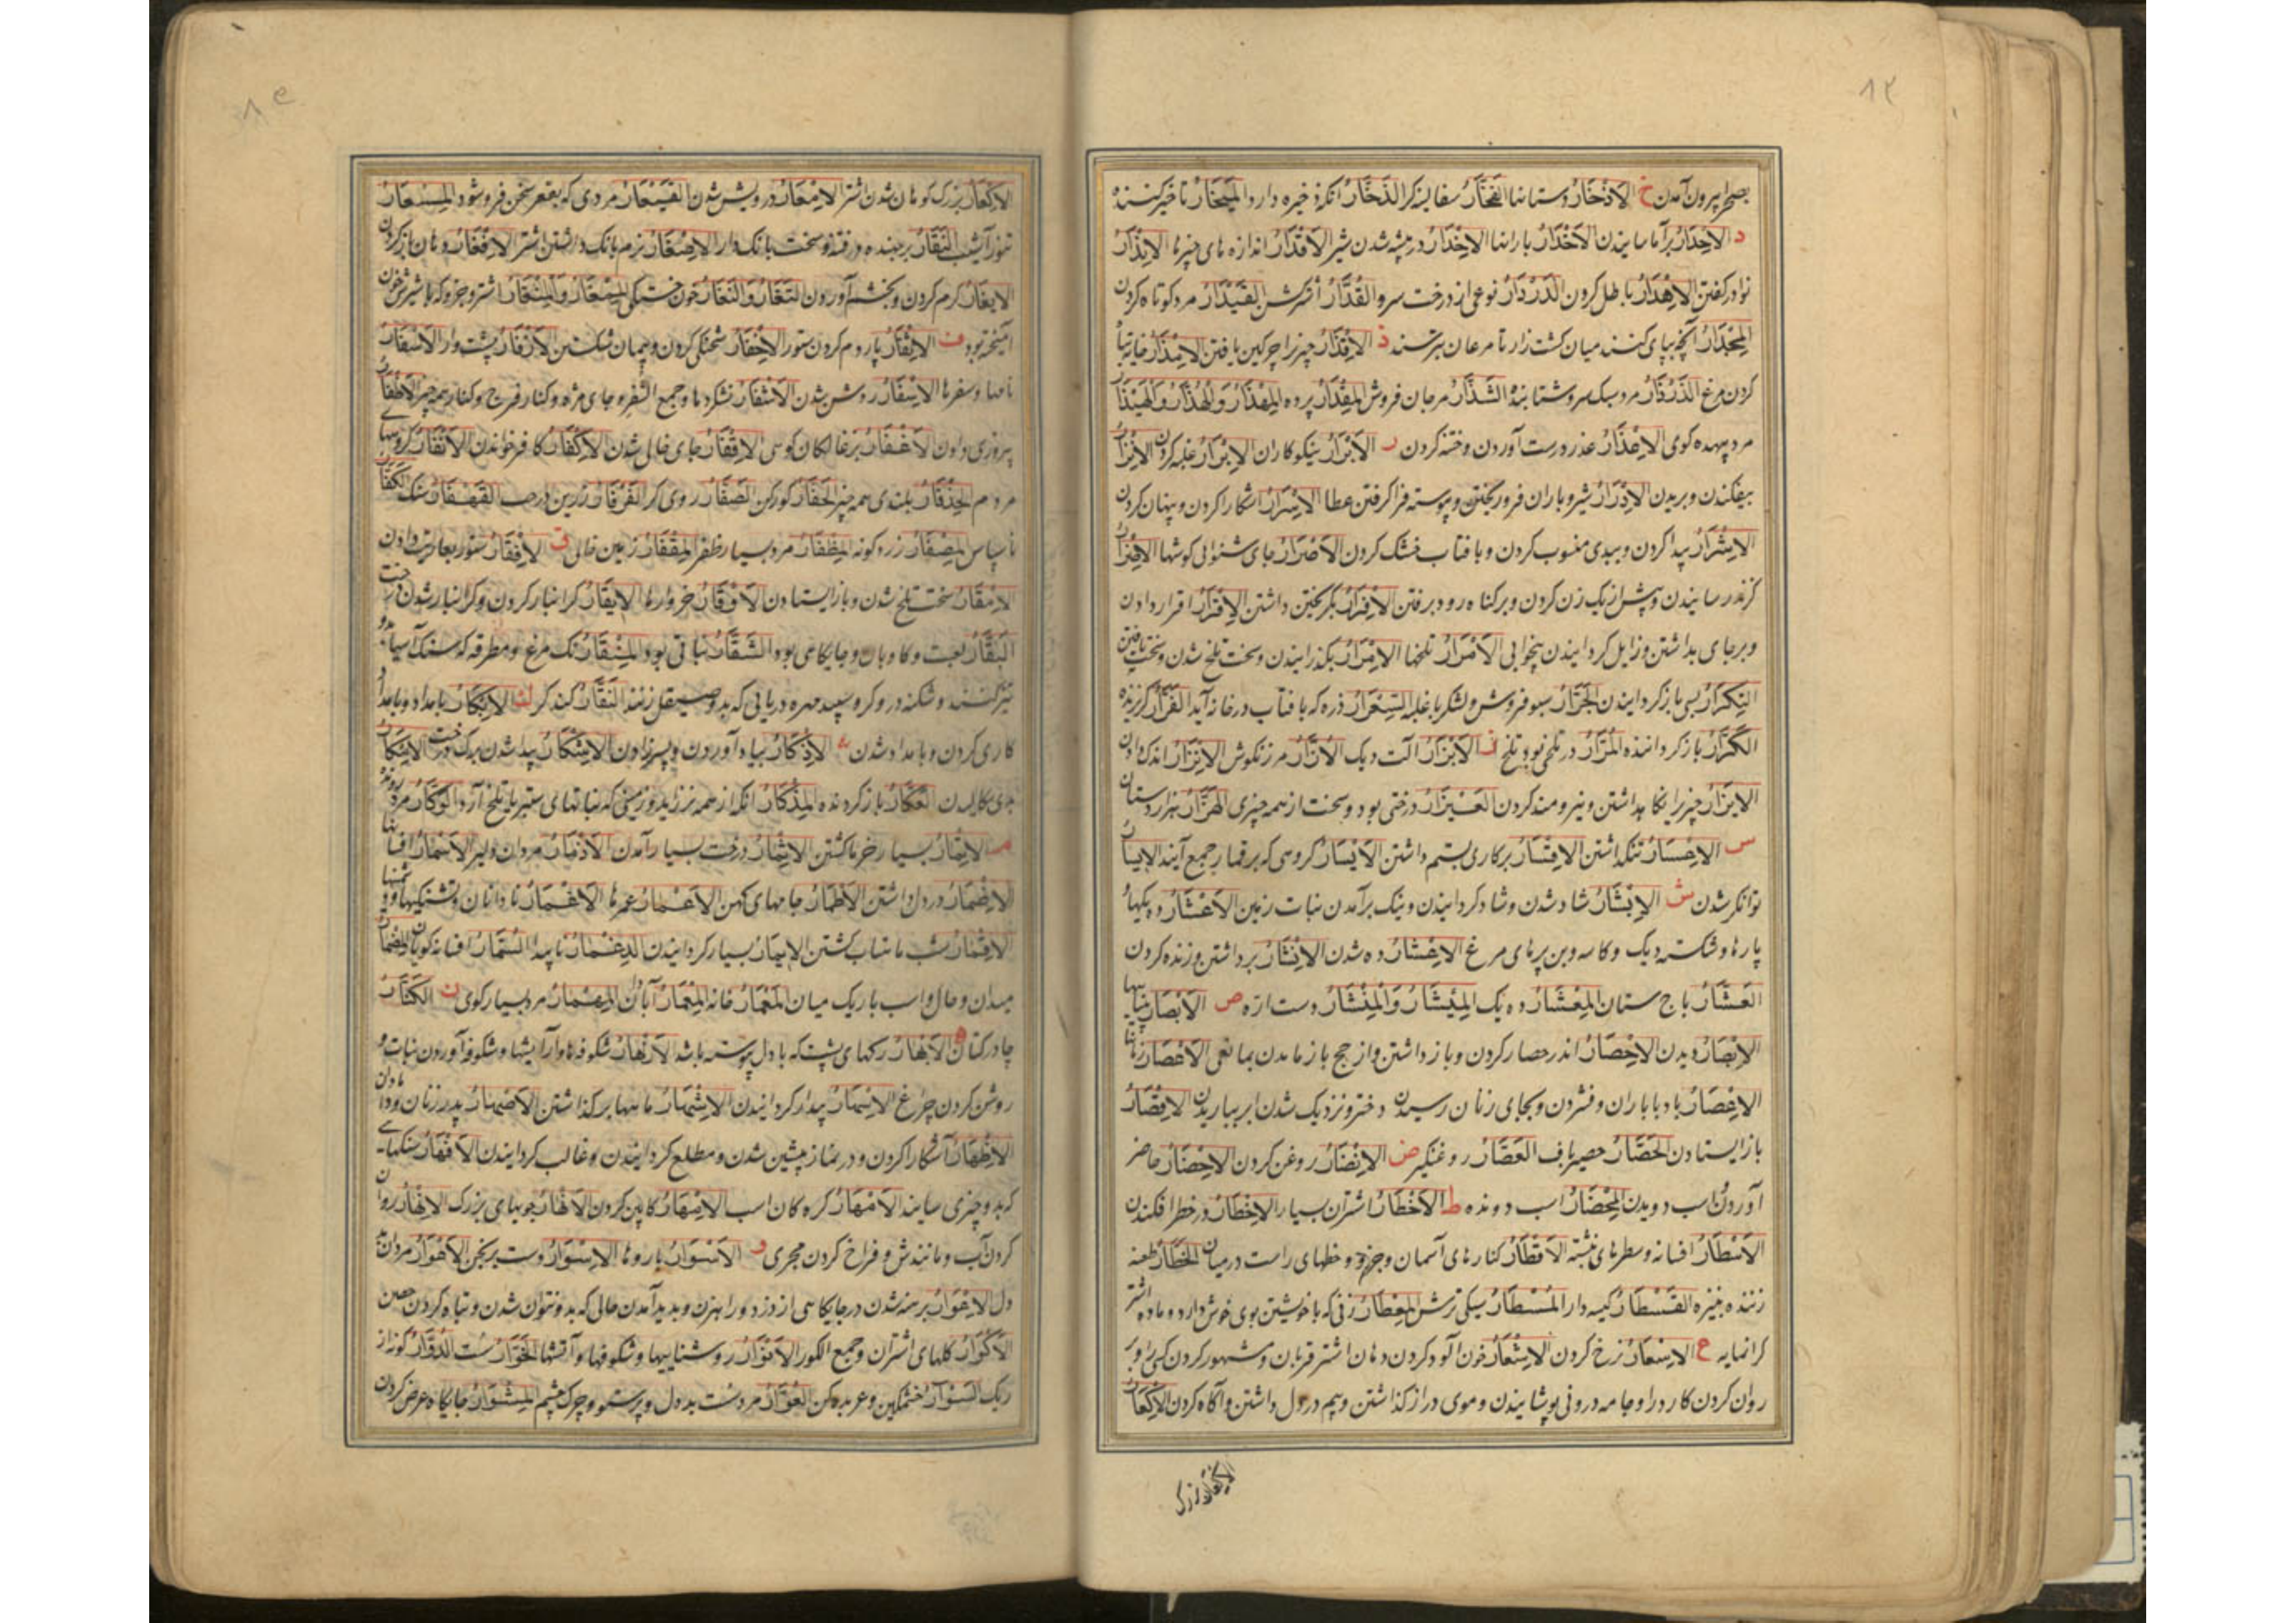 ۸۲
بصحرا بیرون آمدن خ الاَذْخَارُ دستانها الفَخَّارُ سفالینه کر الذَخَّارُ آنکه ذخیره دارد المِیْخَارُ تاخیر کننده
د الاِحْدَارُ برآماسانیدن الاَخْدَارُ بارانها الاِخْدَارُ در بیشه شدن شیر الاَقْدَارُ اندازه های چیزها الاِنْذَارُ
نوادر کفتن الاِهْدَارُ باطل کردن الدَّرْدَارُ نوعی از درخت سرو القُدَّارُ القَیْدَارُ مرد کوتاه کردن
المِجْدَارُ آنچه بپای کنند میان کشت زار تا مرغان بترسند ذ الاِقْذَارُ چیز را چرکین یافتن الاِمْذَارُ خایه تباه
کردن مرغ مرد سبک سر و شتابنده الشَّذَّارُ مرجان فروش پرده المِهْذَارُ وَالهُذَّارُ وَالهَیْذَارُ
مرد بیهده کوی الاِعْذَارُ عذر درست آوردن و ختنه کردن ر الاَبْرَارُ نیکوکاران الاِبْرَارُ غلبه کردن الاِتْرَارُ
بیفکندن و بریدن الاِدْرَارُ شیر و باران فرو ریختن و پیوسته فرا کرفتن عطا الاِسْرَارُ اشکارا کردن و پنهان کردن
الاِشْرَارُ پیدا کردن و ببدی منسوب کردن و بافتاب خشک کردن جای شنوایی کوشها الاِضْرَارُ
کزند رسانیدن و پیش از یک زن کردن و بر کناه رود برفتن الاِفْرَارُ بکریختن داشتن الاِقْرَارُ اقرار دادن
و برجای بداشتن و زایل کردانیدن بیخوابی الاَمْرَارُ تلخها الاِمْرَارُ بکذرانیدن و سخت تلخ شدن و سخت تافتن
التِکْرَارُ بسی باز کردانیدن الجَرَّارُ سبو فروش و لشکر با غلبه ذره که بافتاب در خانه آید الفَرَّارُ کریزنده
الکَرَّارُ باز کرداننده المُرَارُ درختی بود تلخ ز الاَبْزَارُ آلت دیک مرزنکوش الاِنْزَارُ اندک دادن
الاِیْزَارُ چیز را نکاه داشتن و نیرومند کردن العَیْزَارُ درختی بود و سخت از همه چیزی الهَزَّارُ هزاردستان
س الاِعْسَارُ تنک داشتن الاِقْسَارُ بر کاری بستم داشتن الاَیْسَارُ کروهی که بر قمار جمع آیند الاِیْسَارُ
توانکر شدن ش الاِبْشَارُ شاد شدن و شاد کردانیدن و نیک برآمدن نبات زمین الاَعْشَارُ ده یکها و
پارها و شکسته دیک و کاسه و بن پرهای مرغ الاِعْشَارُ ده شدن الاِنْشَارُ برداشتن و زنده کردن
العَشَّارُ باج ستان المِعْشَارُ ده یک المِیْشَارُ وَالمِنْشَارُ دست اره ص الاَبْصَارُ بینایها
الاِبْصَارُ دیدن الاِحْصَارُ اندر حصار کردن و باز داشتن و از حج باز ماندن بمانعی الاَعْصَارُ زمانها
الاِعْصَارُ باد با باران و فشردن و بجای زنان رسیدن دختر و نزدیک شدن ابر بباریدن الاِقْصَارُ
باز ایستادن الحَصَّارُ حصیر باف العَصَّارُ روغنگیر ض الاِنْضَارُ روغن کردن الاِحْضَارُ حاضر
آوردن و اسب دویدن المِحْضَارُ اسب دونده ط الاَخْطَارُ اشتران بسیار الاِخْطَارُ در خطر افکندن
الاَسْطَارُ افسانه و سطرهای نبشته الاَقْطَارُ کنارهای آسمان و جزو و خطهای راست در میان الخَطَّارُ طعنه
زننده بنیزه القَسْطَارُ کیسه دار المُسْطَارُ سیکی ترش المِعْطَارُ زنی که با خویشتن بوی خوش دارد و ماده اشتر
کرانمایه ع الاِسْعَارُ نرخ کردن الاِشْعَارُ خون آلود کردن دهان اشتر قربان و مشهور کردن
روان کردن کارد را و جامه درونی پوشانیدن و موی دراز کذاشتن و بیم در دل داشتن و آکاه کردن الاِکْعَارُ
الاِکْعَارُ بزرک
۸۵
الاِکْعَارُ بزرک کوهان شدن اشتر الاِمْعَارُ درویش شدن مردی که بقعر سخن فرو شود المِسْعَارُ
تنور آشیب النَعَّارُ برجهنده در فتنه و سخت بانک دار الاِصْغَارُ نرم بانک داشتن اشتر الاِفْغَارُ دهان باز کردن
الاِیْغَارُ کرم کردن و بخشم آوردن خون خستکی اشتر و جزو که با شیرش خون
آمیخته بود ف الاِثْفَارُ پاردم کردن ستور الاِخْفَارُ شحنکی کردن و پیمان شکستن الاَزْفَارُ پشت وار الاَسْفَارُ
نامها و سفرها الاِسْفَارُ روشن شدن و جمع الشُفْر و جای مژه و کنار فرج و کنار همه چیز الاِظْفَارُ
پیروزی دادن الاِقْفَارُ جای خالی شدن الاِکْفَارُ کافر خواندن الاَنْفَارُ کروههای
مردم بلندی همه چیز الحَفَّارُ کورکن الصَفَّارُ روی کر الکَفَّارُ
ناسپاس المِصْفَارُ زرد کونه المِظْفَارُ مرد بسیار ظفر المِقْفَارُ زمین خالی ق الاِفْقَارُ ستور بعاریت دادن
الاِمْقَارُ سخت تلخ شدن و باز ایستادن الاَوْقَارُ خروارها الاِیْقَارُ کرانبار کردن و کرانبار شدن درخت
البَقَّارُ لعبت و کاوبان و جایکاهی بود الشَقَّارُ نباتی بود المِنْقَارُ نک مرغ و مطرقه که سنک آسیا بدو
تیز کنند و شکنه درودکر و سپید مهره دریایی که بدو صیقل زنند النَقَّارُ کنده کر ك الاِبْکَارُ بامداد و بامداد
کاری کردن و بامداد شدن الاِذْکَارُ بیاد آوردن و پسر زادن الاِشْکَارُ پیدا شدن برک درخت
العَکَّارُ باز کردنده المِذْکَارُ آنکه از همه نر زاید و زمینی که نباتهای ستبر یا تلخ آرد الوَکَّارُ مرد دونده
م الاِتْمَارُ بسیار خرما کشتن الاِثْمَارُ درخت بسیار بارآمدن الاَذْمَارُ مردان دلیر الاَسْمَارُ افسانها
الاِضْمَارُ در دل داشتن الاَطْمَارُ جامهای کهن الاَعْمَارُ عمرها الاَغْمَارُ نادانان و تشنکیها و دشمنیها
الاِقْمَارُ شب ماهتاب کشتن بسیار کردانیدن ناپیدا السُمَّارُ افسانه کویان المِضْمَارُ
میدان و حال و اسب باریک میان المِعْمَارُ آبادان مرد بسیار کوی ن الکَتَّانُ
چادر کتان ه الاَبْهَارُ رکهای پشت که با دل پیوسته باشد الاَزْهَارُ شکوفها و آرایشها و شکوفه آوردن نبات و
روشن کردن چراغ الاِسْهَارُ بیدار کردانیدن الاِشْهَارُ ماهها بر کذاشتن الاَصْهَارُ پدر زنان و دامادان
الاِظْهَارُ آشکارا کردن و در نماز پیشین شدن و مطلع کردانیدن و غالب کردانیدن الاَفْهَارُ سنکهای
که بدو چیزی سایند الاَمْهَارُ کره کان اسب الاِمْهَارُ کابین کردن الاَنْهَارُ جویهای بزرک الاِنْهَارُ روان
کردن آب و مانندش و فراخ کردن مجری و الاَسْوَارُ باروها الاِسْوَارُ دست برنجن
دل الاِعْوَارُ برهنه شدن در جایکاهی از دزد و راهزن و بدید آمدن حالی که بدو نتوان شدن و تباه کردن
الاَکْوَارُ کلهای اشتران و جمع الکور الاَنْوَارُ روشناییها و شکوفها و آتشها الخَوَّارُ سست الدُوَّارُ کونه از
ریک السَوَّارُ خشمکین و عربده کن العُوَّارُ مرد سست بد دل و پرستو و چرک چشم المِشْوَارُ جایکاه عرض کردن